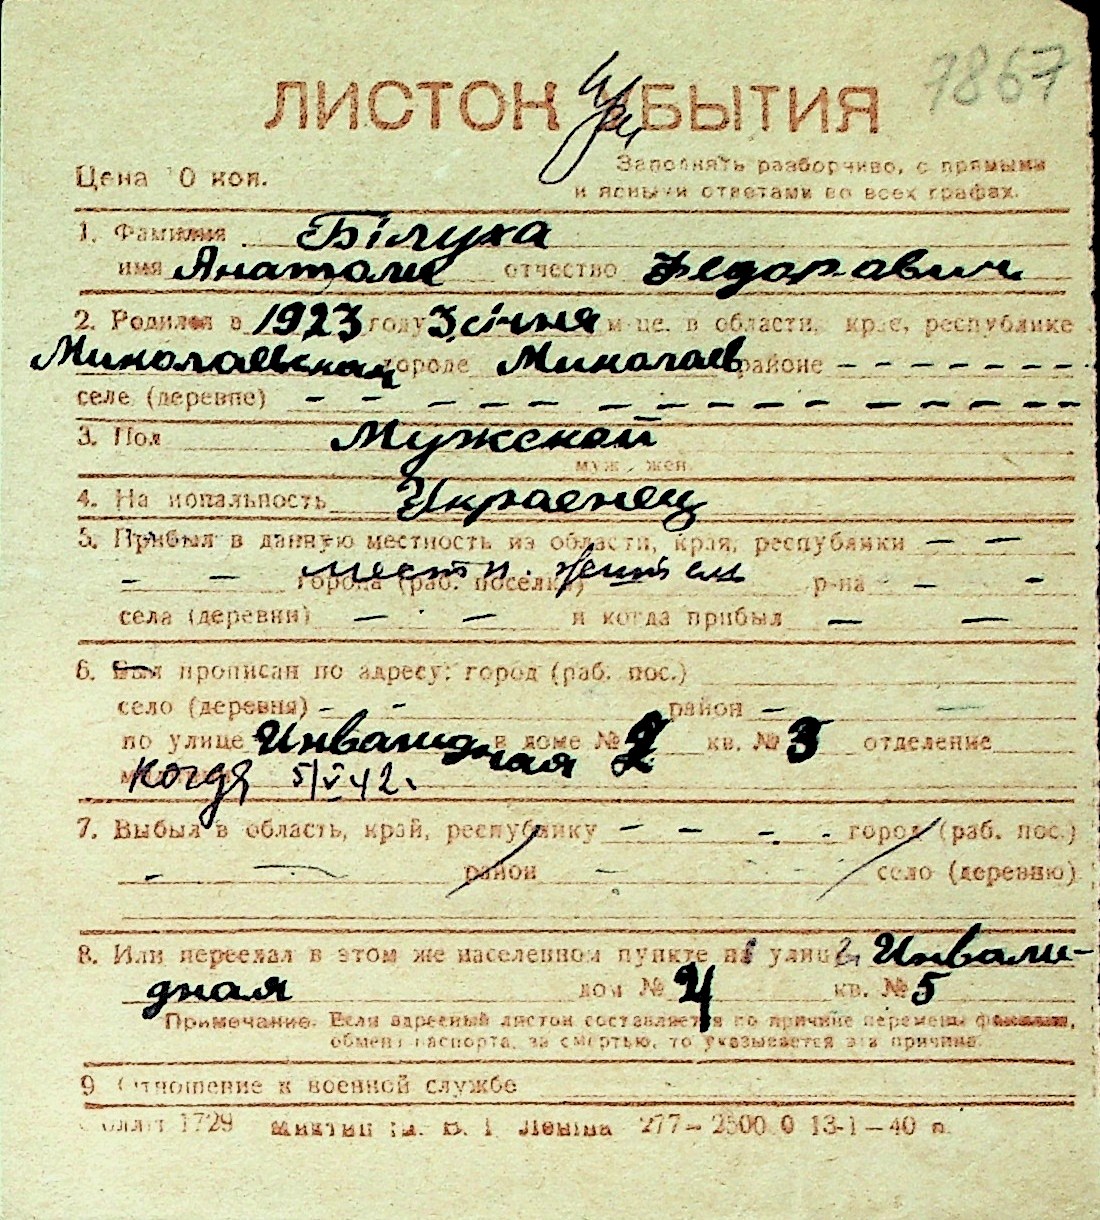 7867
ЛИСТОК УБЫТИЯ
при
Заполнять разборчиво, с прямыми
Цена 10 коп. и ясными ответами во всех графах.
1. Фамилия Білуха
имя Анатолие отчество Федорович
2. Родился в 1923 году 3 січня м-це, в области, крае, республике
Миколаевская городе Миколаев районе – – – – – – –
селе (деревне) – – – – – – – – – – – – –
3. Пол Мужской
муж., жен.
4. Национальность Украенец
5. Прибыл в данную местность из области, края, республики – –
– – города (раб. поселка) местн. житель р-на – –
села (деревни) – – и когда прибыл – –
6. Был прописан по адресу: город (раб. пос.)
село (деревня) – – район – –
по улице Инвалидная в доме № 2 кв. № 3 отделение
когда 5/V 42.
7. Выбыл в область, край, республику – – – – город (раб. пос.)
– – район – – село (деревню)
8. Или переехал в этом же населенном пункте на улицу Инвали-
дная дом № 4 кв. № 5
Примечание. Если адресный листок составляется по причине перемены фамилии,
обмена паспорта, за смертью, то указывается эта причина.
9. Отношение к военной службе
1729 Миктип ім. В. І. Леніна 277–2500.0 13-1–40 п.